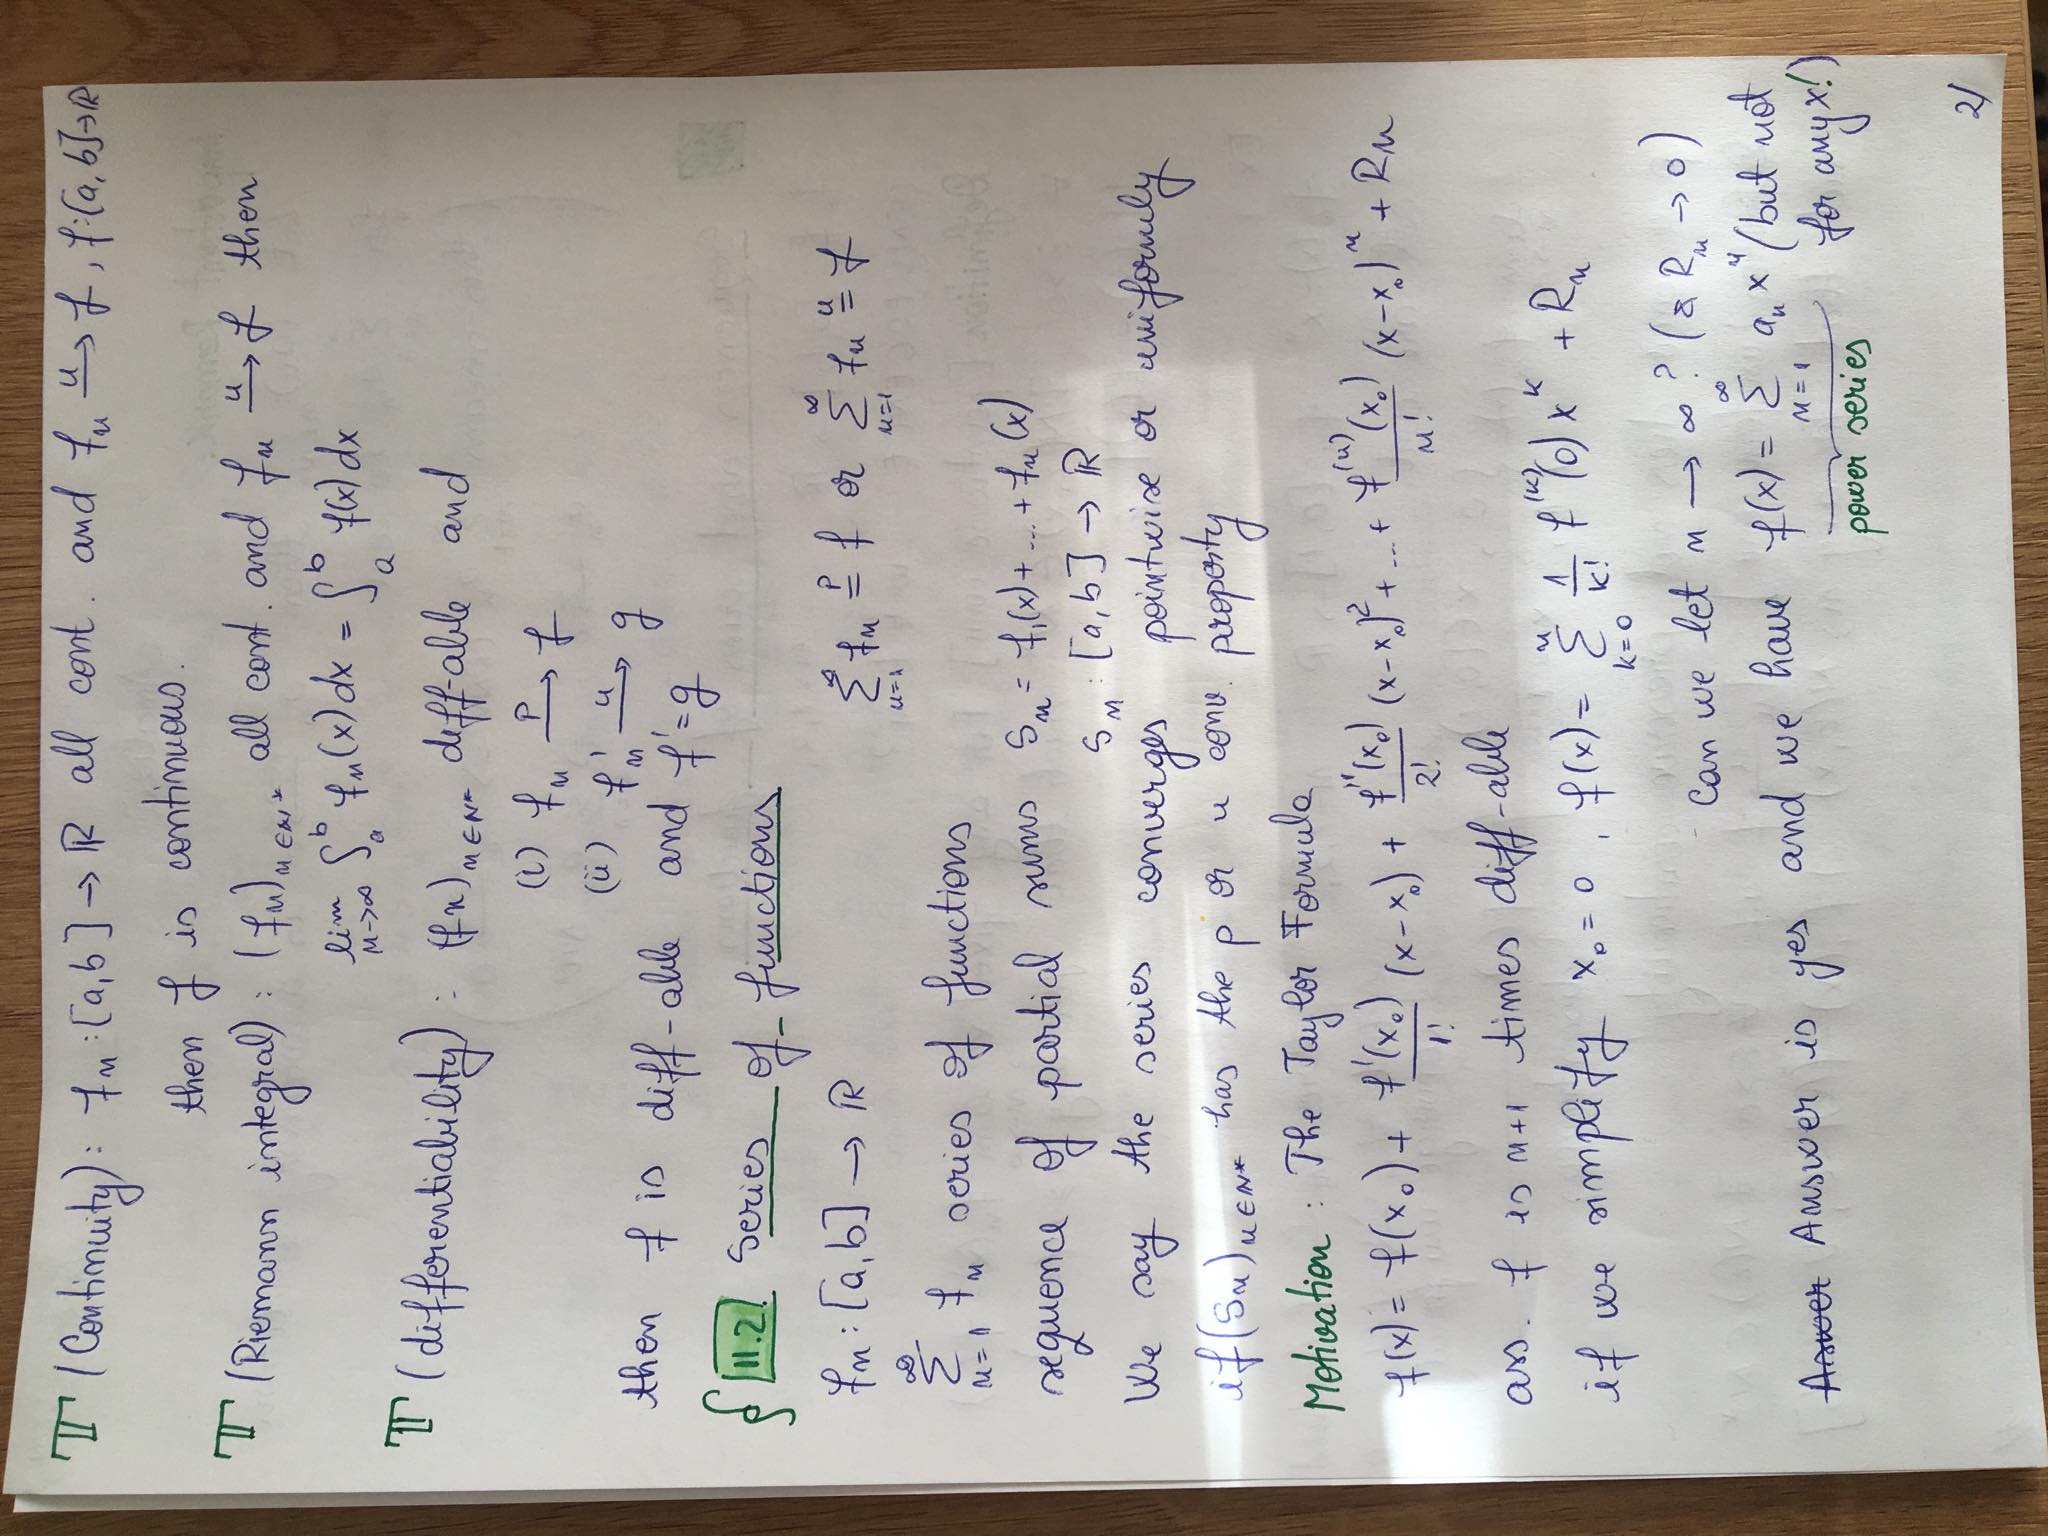 T (Continuity): fn : [a,b] → ℝ all cont. and fn —u→ f, f:[a,b]→ℝ
then f is continuous.
T (Riemann integral): (fn)n∈N* all cont. and fn —u→ f then
lim n→∞ ∫ₐᵇ fn(x)dx = ∫ₐᵇ f(x)dx
T (differentiability): (fn)n∈N* diff-able and
(i) fn —p→ f
(ii) fn' —u→ g
then f is diff-able and f'=g
§ II.2. Series of functions
fn : [a,b] → ℝ
∑_{n=1}^∞ fn =^p f or ∑_{n=1}^∞ fn =^u f
∑_{n=1}^∞ fn series of functions
sequence of partial sums Sn = f₁(x)+...+fn(x)
Sn : [a,b] → ℝ
We say the series converges pointwise or uniformly
if (Sn)n∈N* has the p or u conv. property
Motivation : The Taylor Formula
f(x) = f(x₀) + f'(x₀)/1! (x-x₀) + f''(x₀)/2! (x-x₀)² + ... + f⁽ⁿ⁾(x₀)/n! (x-x₀)ⁿ + Rn
ass. f is n+1 times diff-able
if we simplify x₀=0, f(x) = ∑_{k=0}^n 1/k! f⁽ᵏ⁾(0) xᵏ + Rn
Can we let n → ∞? (& Rn → 0)
Aswer Answer is yes and we have f(x) = ∑_{n=1}^∞ an xⁿ (but not
for any x!)
power series
2/